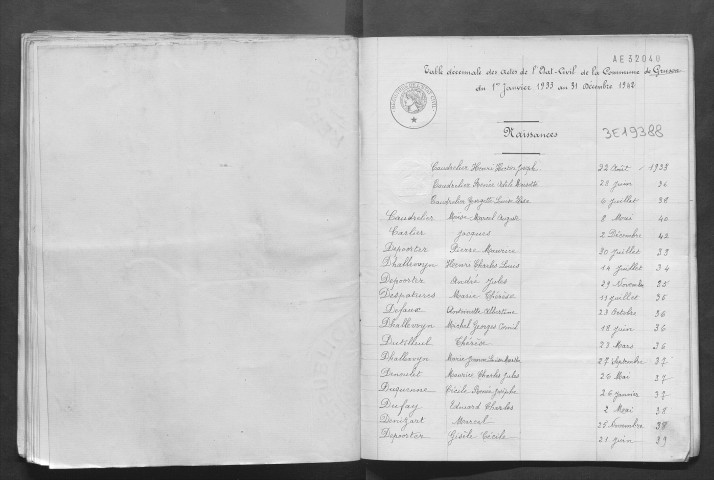 AE32040
Table décennale des actes de l'Etat-Civil de la Commune de Gruson
du 1er Janvier 1933 au 31 Décembre 1942
Naissances
3E19388
Caudrelier Henri 22 Août 1938
Caudrelier 28 Juin 36
Caudrelier Georgette Louise 6 Juillet 38
Caudrelier Marcel 8 Mai 40
Carlier Jacques 2 Décembre 42
Depoorter Pierre Maurice 30 Juillet 33
Dhallevoyn Henri Charles Louis 14 Juillet 34
Depoorter André Jules 29 Novembre 35
Despatures Marie Thérèse 11 Juillet 36
Defaux Antoinette Albertine 23 Octobre 36
Dhallevoyn Michel Georges 18 Juin 36
Dutilleul Thérèse 23 Mars 36
Dhallevoyn Marie 27 Septembre 37
Maurice Charles Jules 26 Mai 37
Duquenne Cécile 26 Janvier 37
Dufay Eduard Charles 2 Mai 38
Denizart Marcel 25 Novembre 38
Depoorter Gisèle Cécile 21 Juin 39